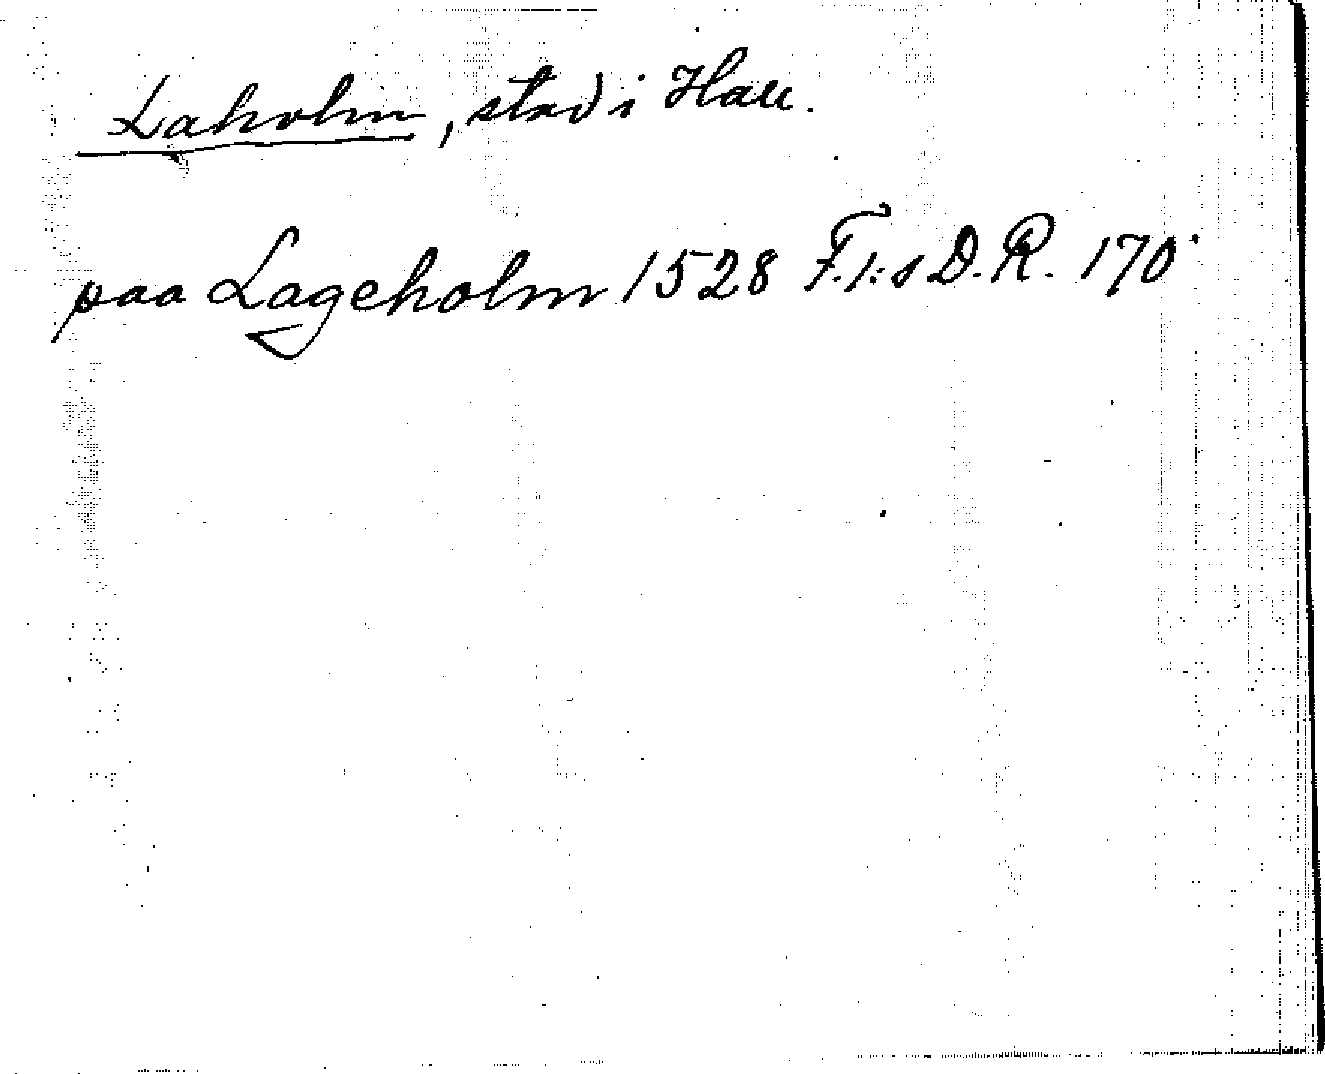 Laholm, stad i Hall.
paa Lageholm 1528 F.I:s D.R. 170